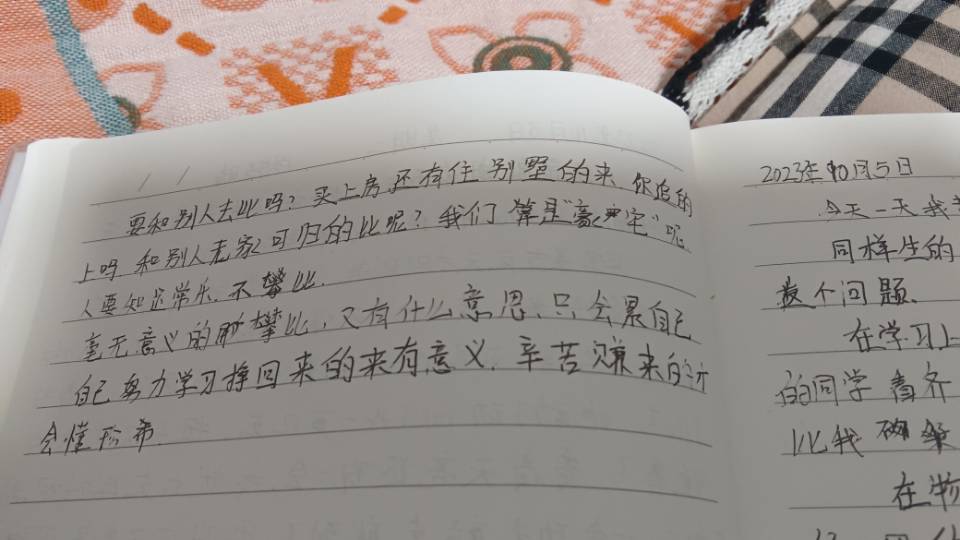 要和别人去比吗？买上房，还有住别墅的来 你追的
上吗 和别人无家可归的比呢？我们算是“豪宅”呢
人要知足常乐，不攀比.
毫无意义的攀比，又有什么意思、只会累自己
自己努力学习挣回来的来有意义，辛苦赚来的才
会懂珍希.
2023年10月5日
今天一天我
同样生的
数个问题、
在学习上
的同学看齐
比我
在物